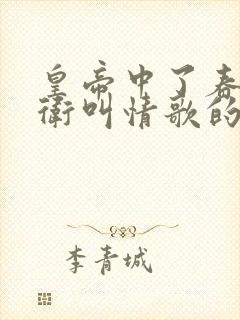 皇帝中了春
衛叫情歌的
李青城